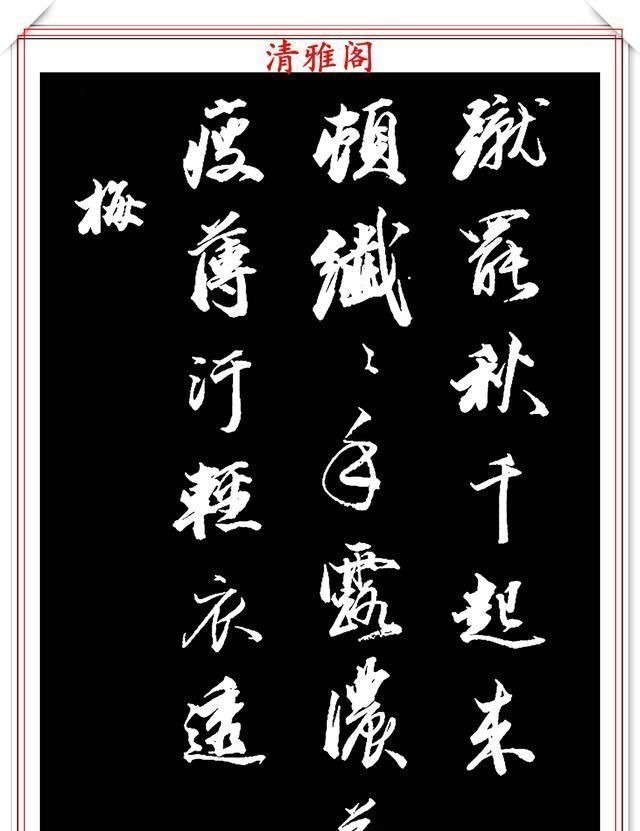 清雅阁
蹴罷秋千起来
頓纖〻手露濃
瘦薄汗輕衣透
梅